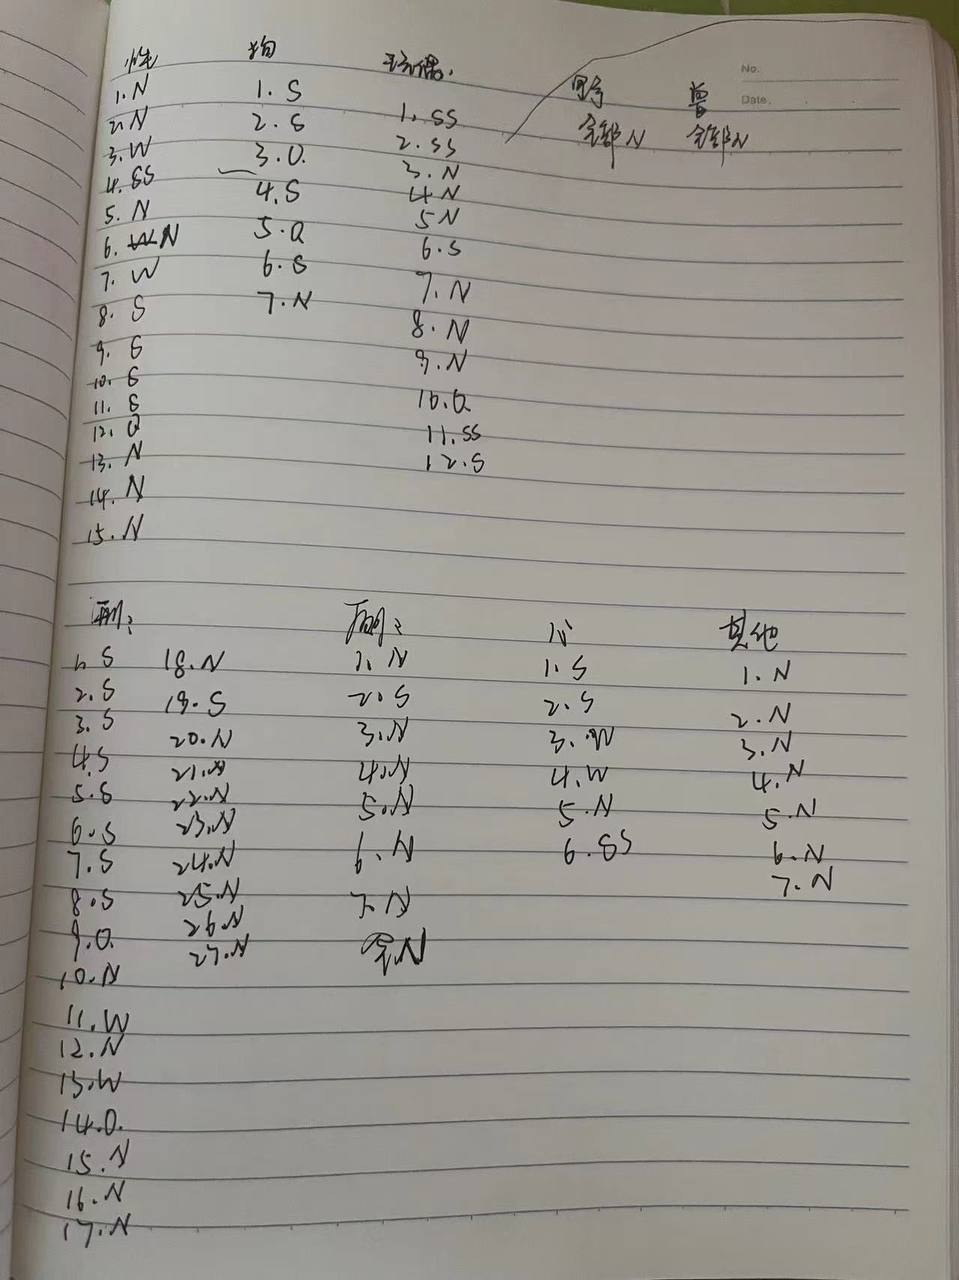 性
1. N
2. N
3. W
4. SS
5. N
6. N
7. W
8. S
9. S
10. S
11. S
12. Q
13. N
14. N
15. N
狗
1. S
2. S
3. Q.
4. S
5. Q
6. S
7. N
玩偶.
1. SS
2. SS
3. N
4 N
5 N
6. S
7. N
8. N
9. N
10. Q
11. SS
12. S
野
全部N
兽
全部N
No.
Date.
1. S
2. S
3. S
4. S
5. S
6. S
7. S
8. S
9. Q.
10. N
11. W
12. N
13. W
14. Q.
15. N
16. N
17. N
18. N
19. S
20. N
21. N
22. N
23. N
24. N
25. N
26. N
27. N
1. N
2. S
3. N
4. N
5. N
6. N
7. N
全N
心
1. S
2. S
3. W
4. W
5. N
6. SS
其他
1. N
2. N
3. N
4. N
5. N
6. N
7. N